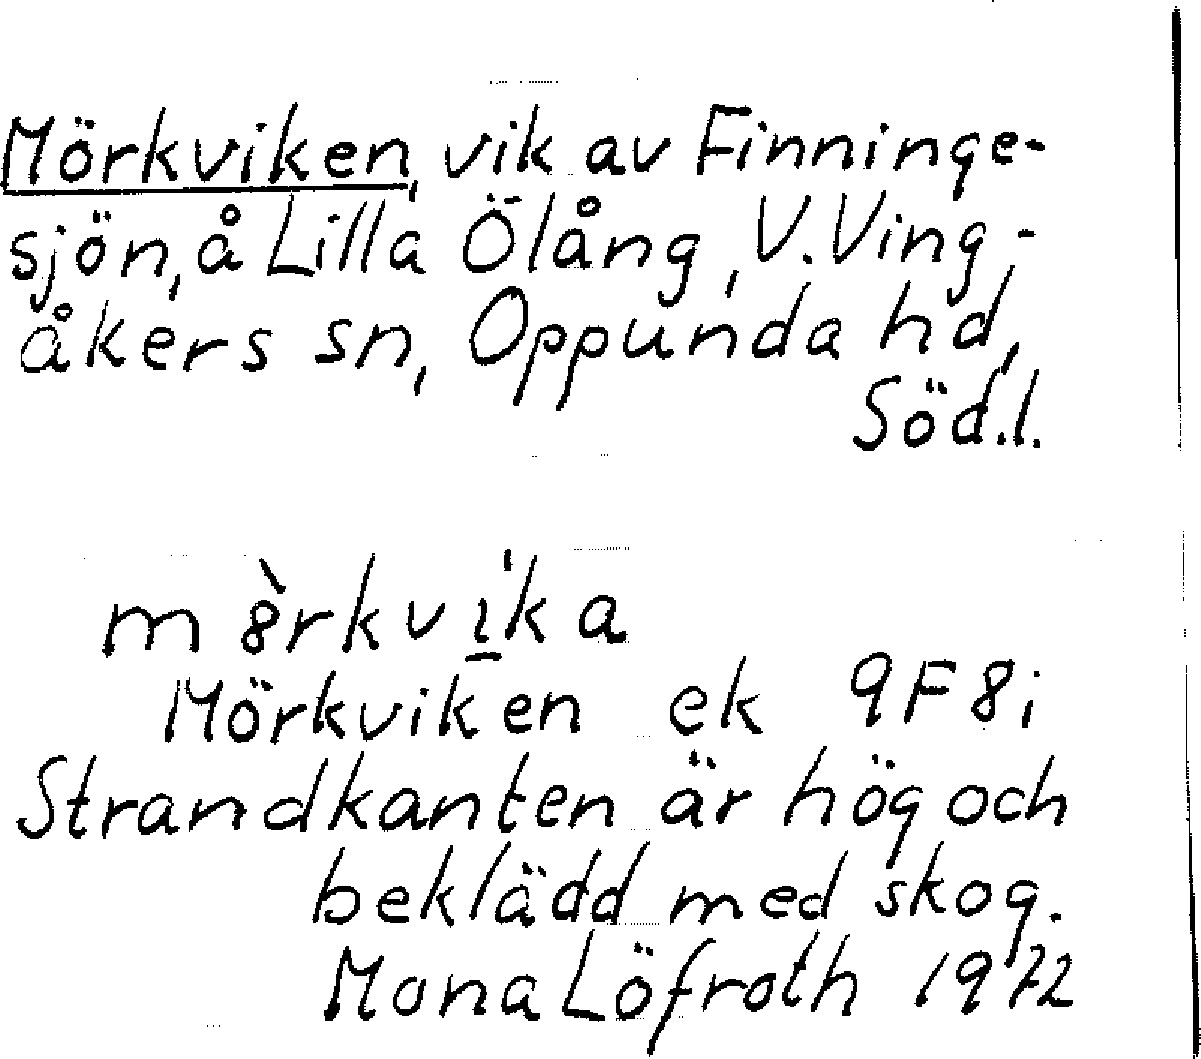 Mörkviken, vik av Finninge-
sjön, å Lilla Ölång, V. Ving-
åkers sn, Oppunda hd,
Söd.l.
m8̀rkvi̲'ka
Mörkviken ek 9F8i
Strandkanten är hög och
beklädd med skog.
Mona Löfroth 1972